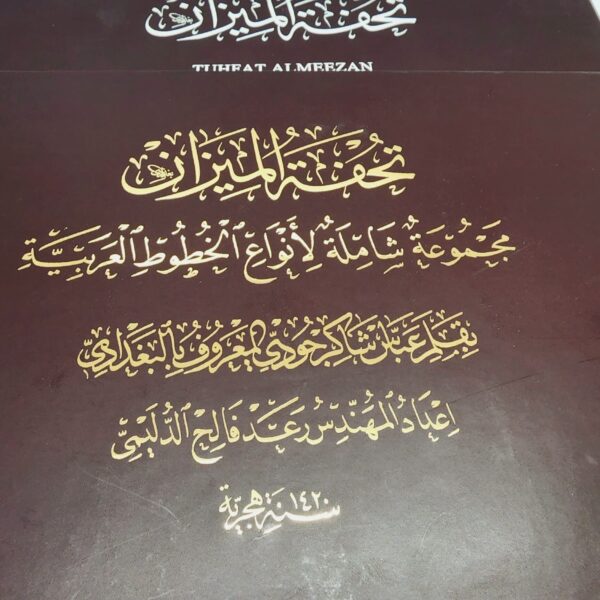 تحفة الميزان
TUHFAT ALMEEZAN
تُحْفَةُ الْمِيزَان
مَجْمُوعَةٌ شَامِلَةٌ لِأَنْوَاعِ ٱلْخُطُوطِ ٱلْعَرَبِيَّةِ
بِقَلَمِ عَبَّاس شَاكِر جُودِي ٱلْمَعْرُوفِ بِالْبَغْدَادِيّ
اِعْدَادُ ٱلْمُهَنْدِسِ رَعَدْ فَالِح ٱلدُّلَيْمِيّ
سنة ١٤٢٠ هجرية